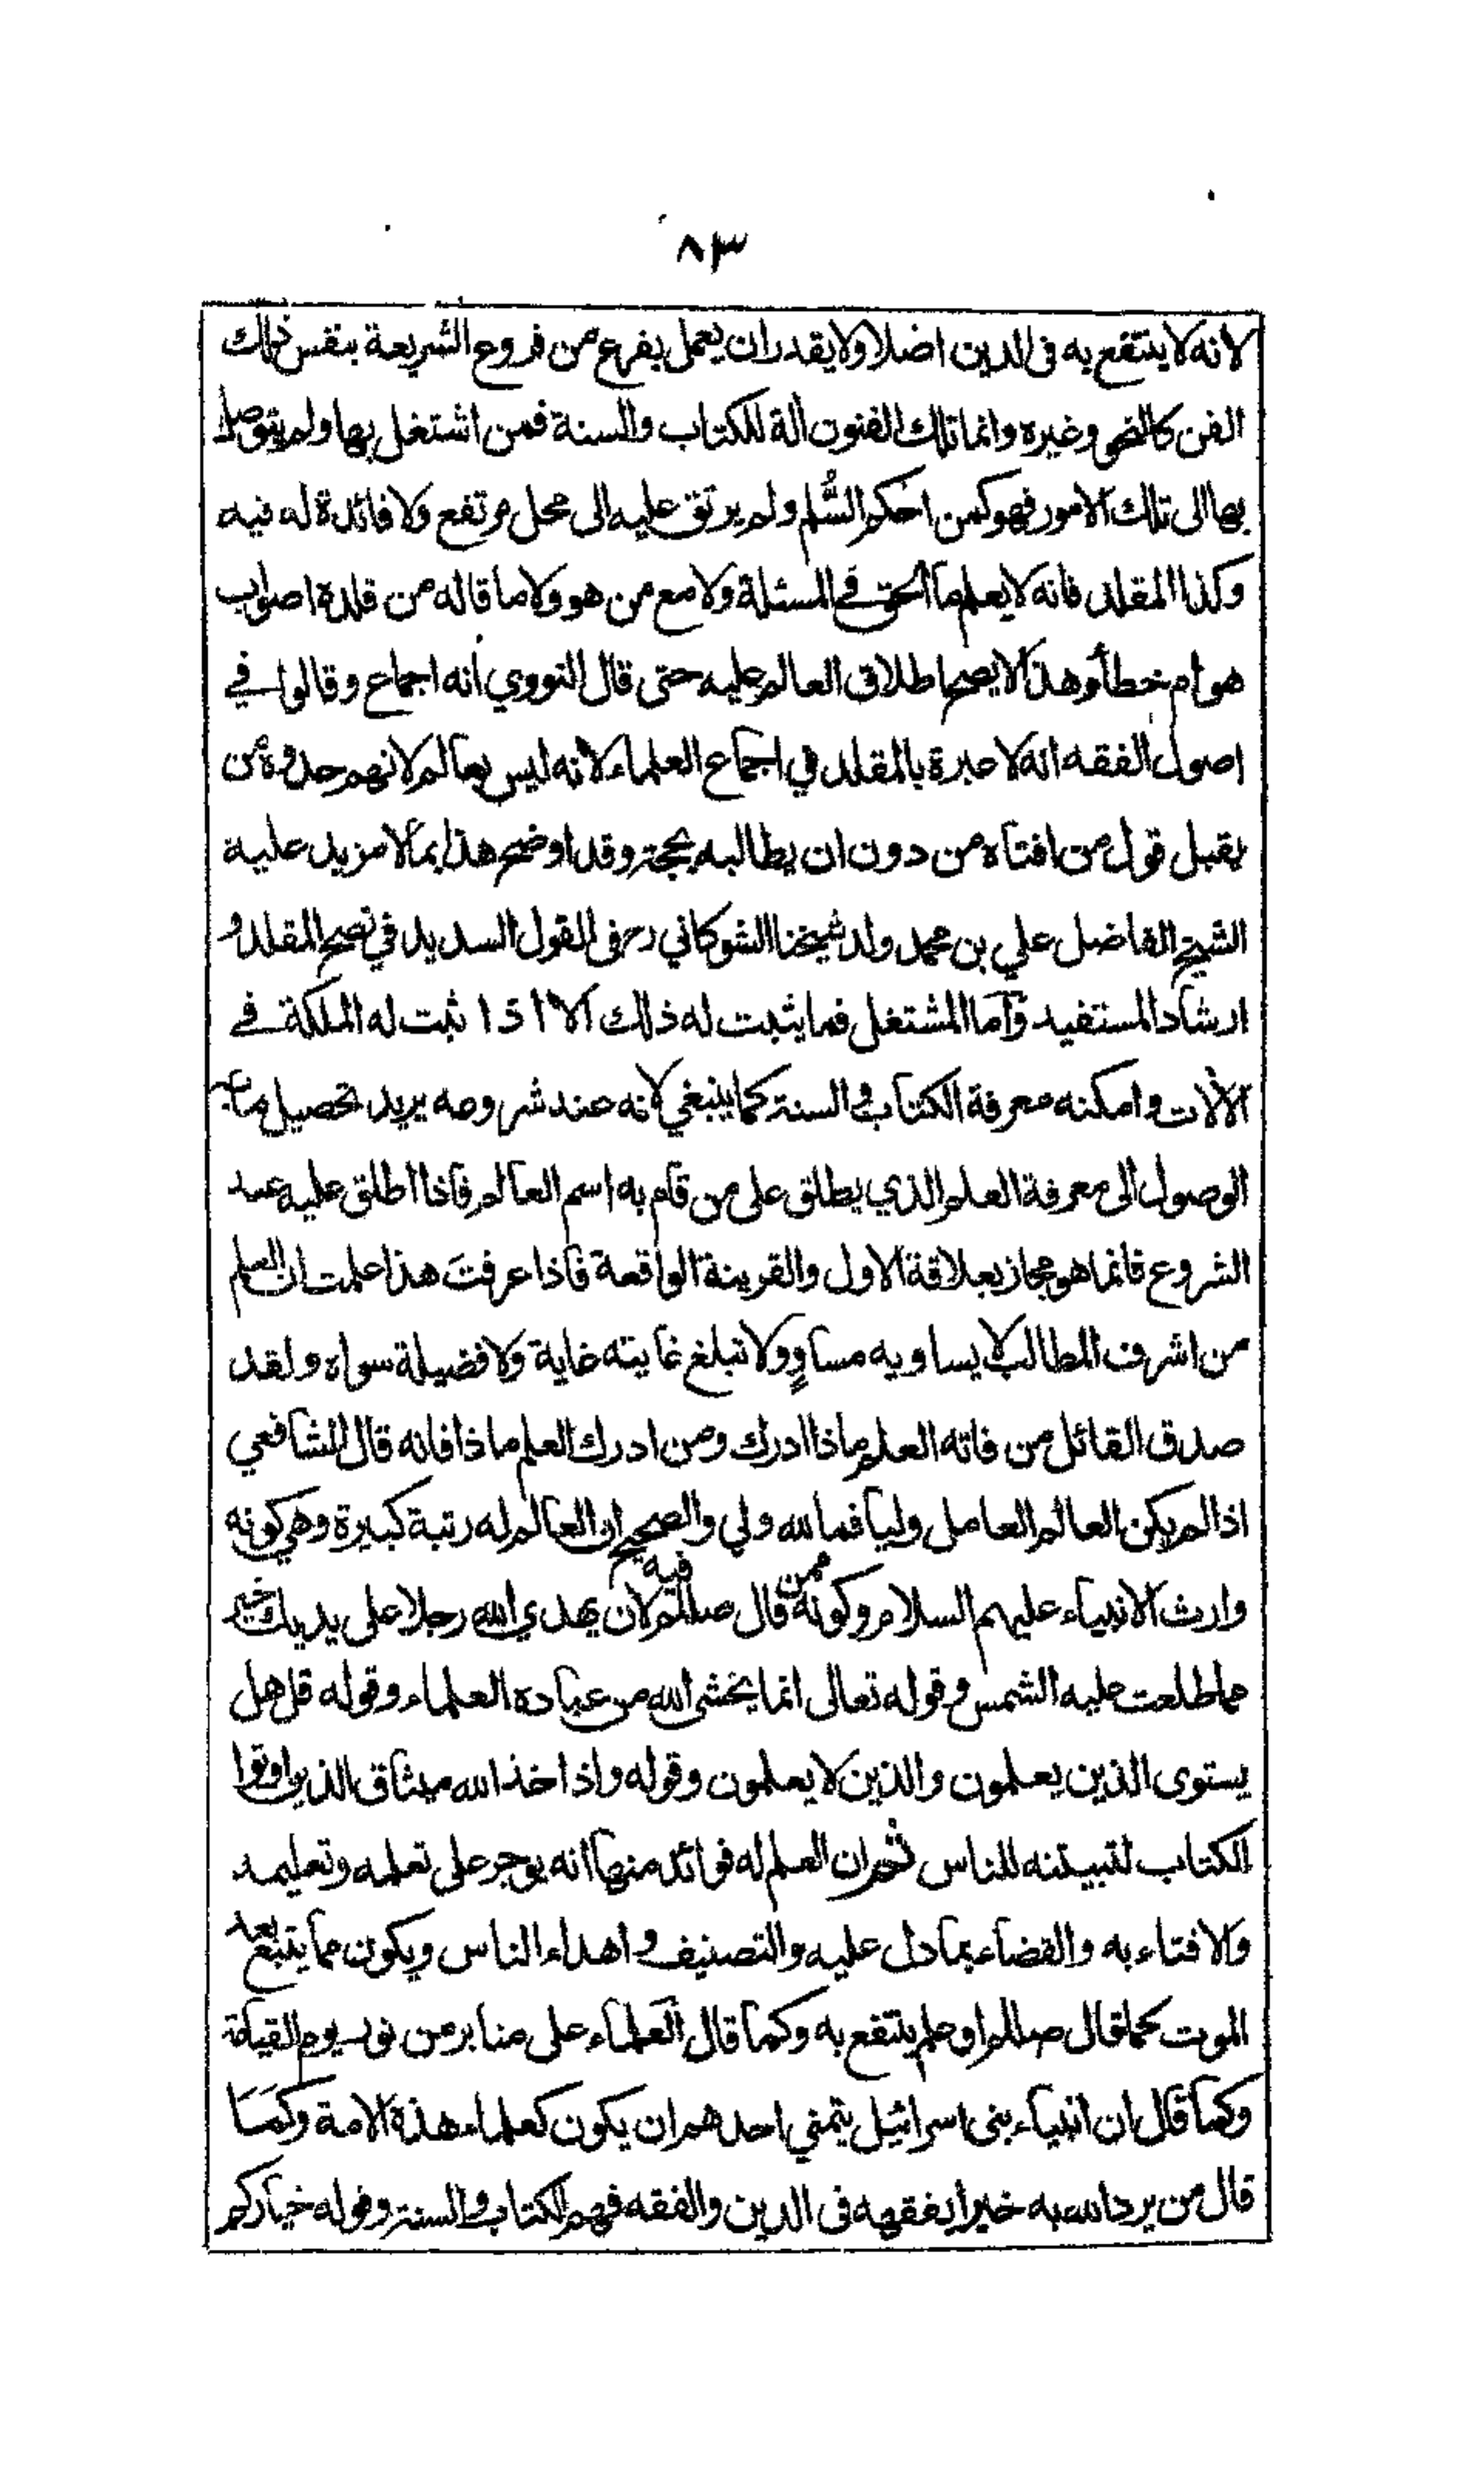 ٨٣
لانه لا ينتفع به فى الدين اصلا ولا يقدر ان يعمل بفرع من فروع الشريعة بنفس ذلك
الفن كالنحو وغيره وانما تلك الفنون الة للكتاب والسنة فمن اشتغل بها ولم يتوصل
بها الى تلك الامور فهو كمن احكم السُّلم ولم يرتق عليه الى محل مرتفع ولا فائدة له فيه
وكذا المقلد فانه لا يعلم ما الحق في المسئلة ولا مع من هو ولا ما قاله من قلده اصواب
هو ام خطأ وهذا لا يصح اطلاق العالم عليه حتى قال النووي انه اجماع وقالوا في
اصول الفقه انه لا عبرة بالمقلد في اجماع العلماء لانه ليس بعالم لانهم حدوه بمن
يقبل قول من افتاه من دون ان يطالبه بحجة وقد اوضح هذا بما لا مزيد عليه
الشيخ الفاضل علي بن محمد ولد شيخنا الشوكاني رح فى القول السديد في نصح المقلد و
ارشاد المستفيد وآما المشتغل فما يثبت له ذلك الا اذا ثبت له الملكة في
الآلات وامكنه معرفة الكتاب والسنة كما ينبغي لانه عند شروعه يريد تحصيل ما به
الوصول الى معرفة العلم الذي يطلق على من قام به اسم العالم فاذا اطلق عليه عند
الشروع فانما هو مجاز بعلاقة الاول والقرينة الواقعة فاذا عرفتَ هذا علمت ان العلم
من اشرف المطالب لا يساويه مساوٍ ولا تبلغ غايته غاية ولا فضيلة سواه ولقد
صدق القائل من فاته العلم ماذا ادرك ومن ادرك العلم ماذا فاته قال الشافعي
اذا لم يكن العالم العامل وليا فما لله ولي والصحيح ان العالم له رتبة كبيرة وهي كونه
وارث الانبياء عليهم السلام وكونه ممن قال فيه صللم لان يهدي الله رجلا على يديك خير
مما طلعت عليه الشمس وقوله تعالى انما يخشى الله من عباده العلماء وقوله قل هل
يستوى الذين يعلمون والذين لا يعلمون وقوله واذ اخذ الله ميثاق الذين اوتوا
الكتاب لتبيننه للناس ثم ان العلم له فوائد منها انه يوجر على تعلمه وتعليمه
والافتاء به والقضاء بما دل عليه والتصنيف و اهداء الناس ويكون مما يتبع بعد
الموت كما قال صللم او علم ينتفع به وكما قال العلماء على منابر من نور يوم القيامة
وكما قال ان انبياء بنى اسرائيل يتمنى احدهم ان يكون كعلماء هذه الامة وكما
قال من يرد الله به خيرا يفقهه فى الدين والفقه فهم الكتاب والسنة وقوله خياركم